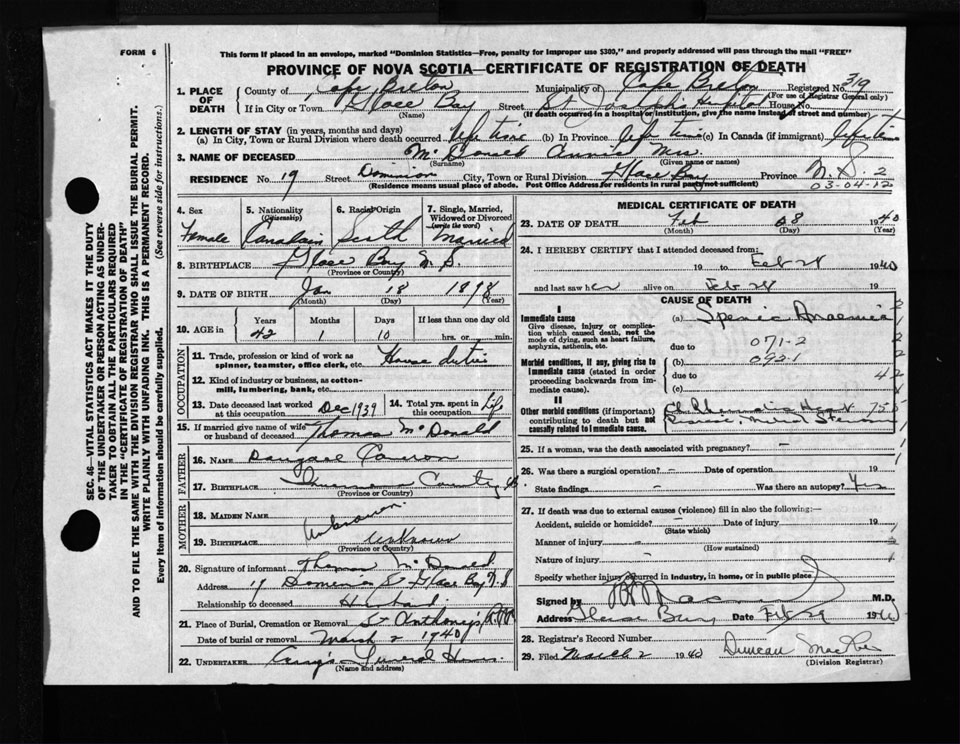 FORM 6
This form if placed in an envelope, marked "Dominion Statistics—Free, penalty for improper use $300," and properly addressed will pass through the mail "FREE"
PROVINCE OF NOVA SCOTIA—CERTIFICATE OF REGISTRATION OF DEATH
1. PLACE OF DEATH County of Cape Breton Municipality of Cape Breton Registered No. 319
(For use of Registrar General only)
If in City or Town Glace Bay Street St Joseph's Hospital House No.
(Name) (If death occurred in a hospital or institution, give the name instead of street and number)
2. LENGTH OF STAY (in years, months and days)
(a) In City, Town or Rural Division where death occurred life time (b) In Province life time (c) In Canada (if immigrant) life time
3. NAME OF DECEASED McDonald Annie Mrs.
(Surname) (Given name or names)
RESIDENCE No. 19 Street Dominion City, Town or Rural Division Glace Bay Province N.S. 2
(Residence means usual place of abode. Post Office Address for residents in rural parts not sufficient) 03-04-12
4. Sex Female
5. Nationality (Citizenship) Canadain
6. Racial Origin Scotch
7. Single, Married, Widowed or Divorced (write the word) Married
8. BIRTHPLACE Glace Bay N.S.
(Province or Country)
9. DATE OF BIRTH Jan 18 1898
(Month) (Day) (Year)
10. AGE in Years Months Days If less than one day old
42 1 10 hrs. or min.
OCCUPATION
11. Trade, profession or kind of work as spinner, teamster, office clerk, etc. House duties
12. Kind of industry or business, as cotton-mill, lumbering, bank, etc.
13. Date deceased last worked at this occupation Dec 1939
14. Total yrs. spent in this occupation Life
15. If married give name of wife or husband of deceased Thomas McDonald
FATHER
16. NAME Dougald Cameron
17. BIRTHPLACE Inverness County
(Province or Country)
MOTHER
18. MAIDEN NAME Unknown
19. BIRTHPLACE Unknown
(Province or Country)
20. Signature of informant Thomas McDonald
Address 19 Dominion St Glace Bay N.S
Relationship to deceased Husband
21. Place of Burial, Cremation or Removal St Anthony's
Date of burial or removal March 2 1940
22. UNDERTAKER Craig's Funeral Home
(Name and address)
MEDICAL CERTIFICATE OF DEATH
23. DATE OF DEATH Feb 28 1940
(Month) (Day) (Year)
24. I HEREBY CERTIFY that I attended deceased from:
19 to Feb 28 1940
and last saw her alive on Feb 28
CAUSE OF DEATH
I
Immediate cause
Give disease, injury or complication which caused death, not the mode of dying, such as heart failure, asphyxia, asthenia, etc.
(a) Spenic Anaemia
due to 071-2
Morbid conditions, if any, giving rise to immediate cause (stated in order proceeding backwards from immediate cause).
(b) 092-1
due to 42
(c)
II
Other morbid conditions (if important) contributing to death but not causally related to immediate cause.
Ch Rheumatic Heart
Disease, Mitral Stenosis
25. If a woman, was the death associated with pregnancy? —
26. Was there a surgical operation? — Date of operation 19
State findings — Was there an autopsy? Yes
27. If death was due to external causes (violence) fill in also the following:—
Accident, suicide or homicide? Date of injury 19
(State which)
Manner of injury
(How sustained)
Nature of injury
Specify whether injury occurred in industry, in home, or in public place
Signed by M.D.
Address Glace Bay Date Feb 29 1940
28. Registrar's Record Number
29. Filed March 2 1940 Duncan
(Division Registrar)
SEC. 46—VITAL STATISTICS ACT MAKES IT THE DUTY
OF THE UNDERTAKER OR PERSON ACTING AS UNDER-
TAKER TO OBTAIN ALL THE PARTICULARS REQUIRED
IN THE "CERTIFICATE OF REGISTRATION OF DEATH"
AND TO FILE THE SAME WITH THE DIVISION REGISTRAR WHO SHALL ISSUE THE BURIAL PERMIT.
WRITE PLAINLY WITH UNFADING INK. THIS IS A PERMANENT RECORD.
Every item of information should be carefully supplied. (See reverse side for instructions.)